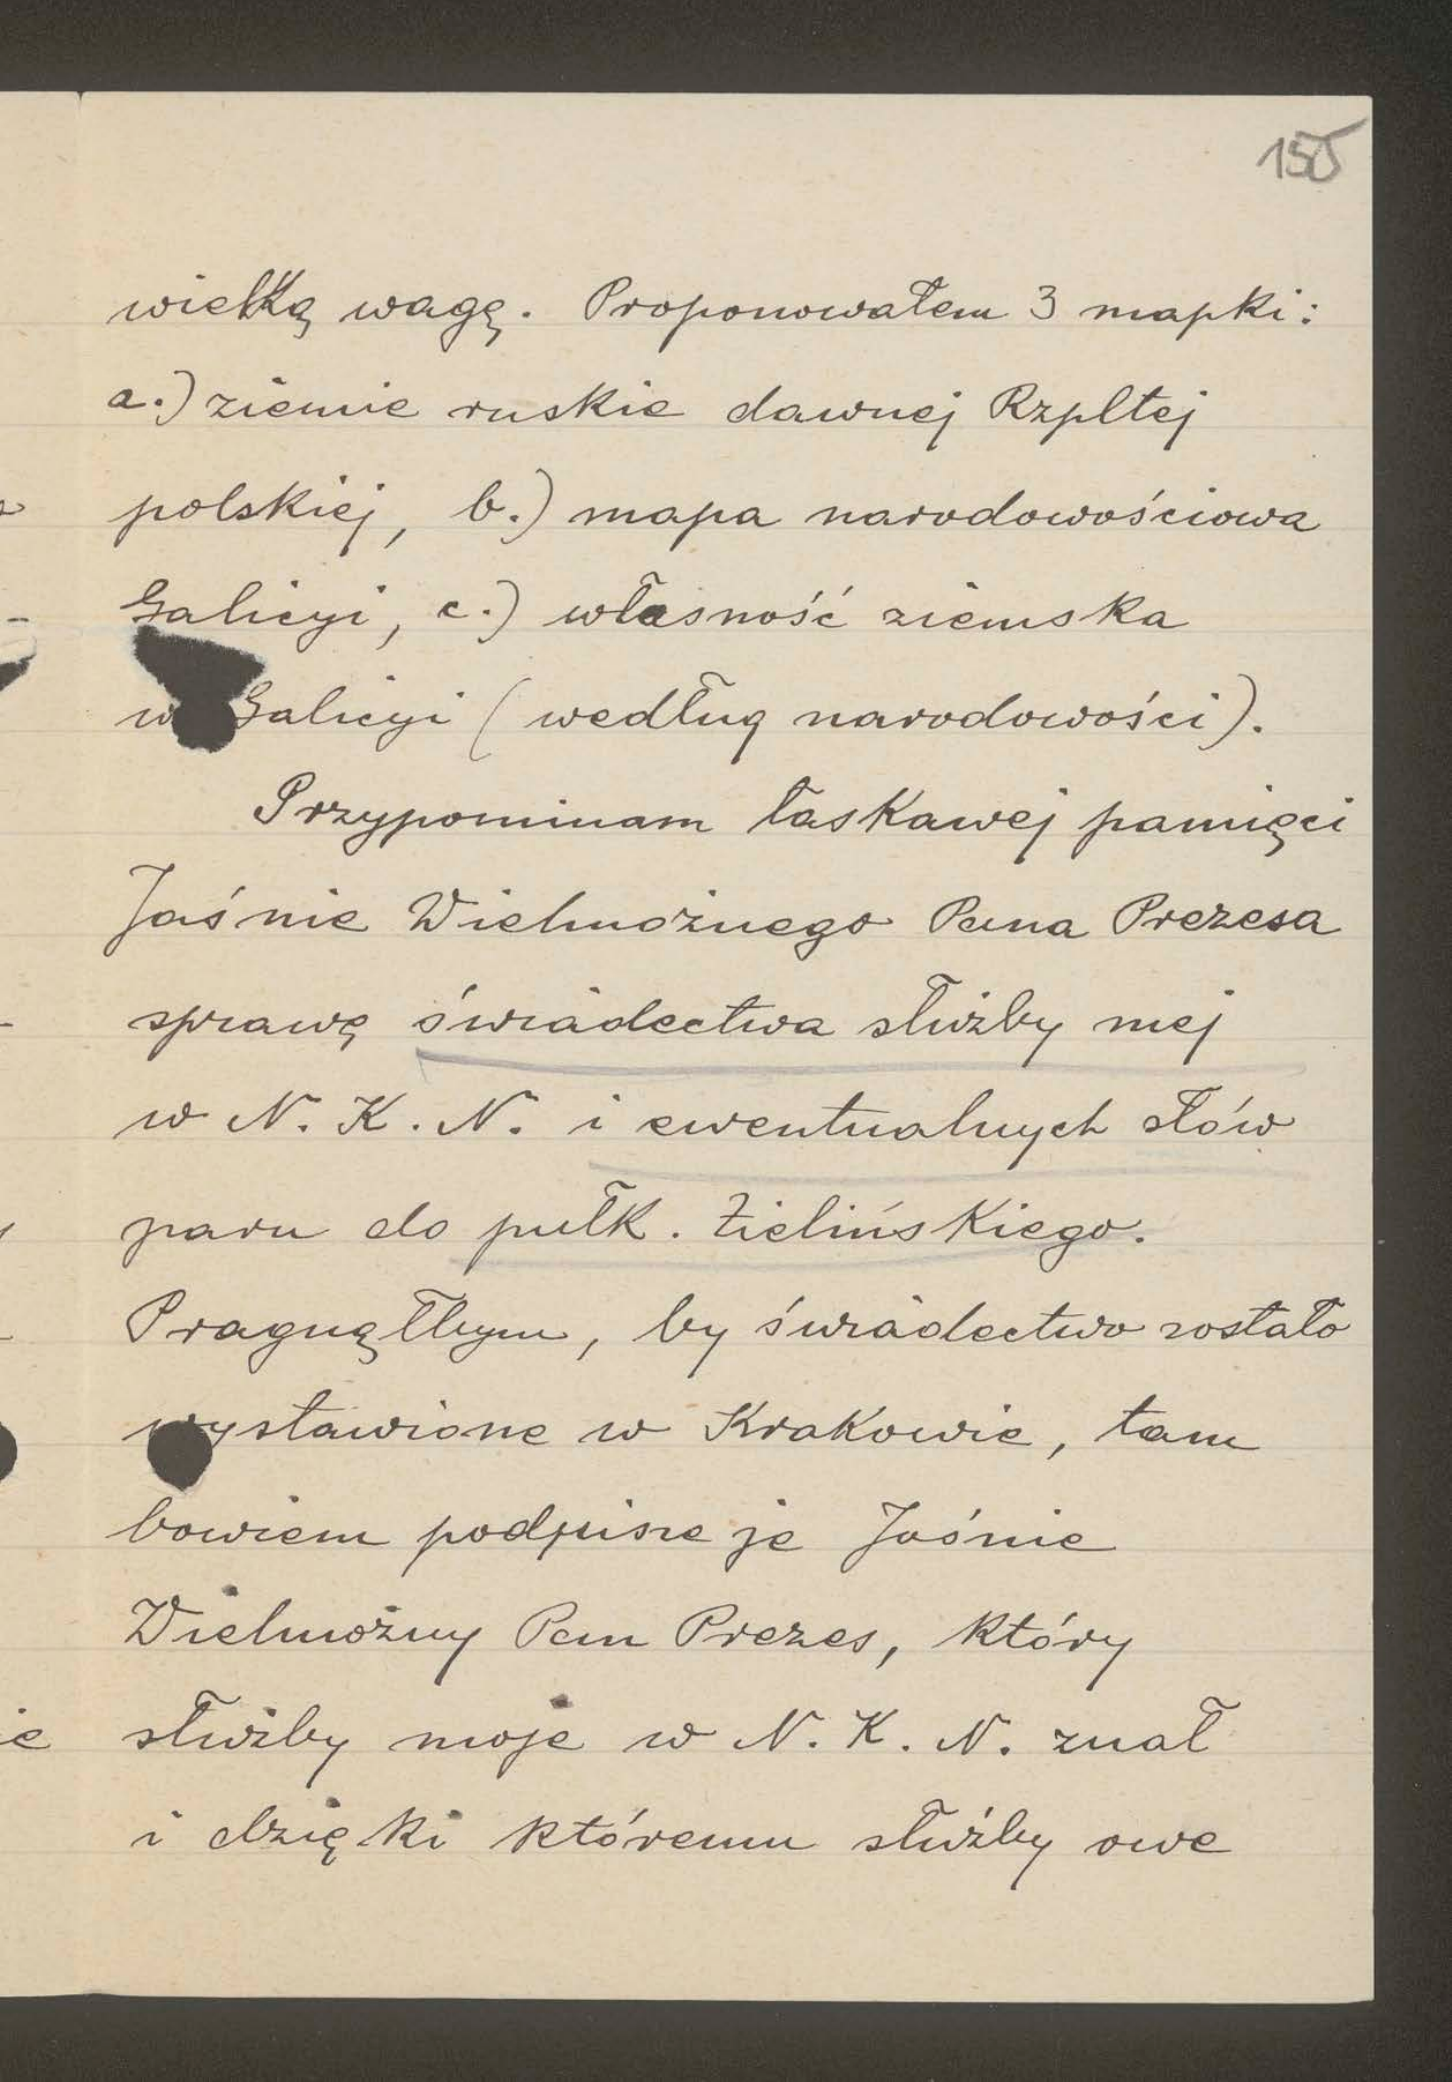 155
wielką wagę. Proponowałem 3 mapki:
a.) ziemie ruskie dawnej Rzpltej
polskiej, b.) mapa narodowościowa
Galicyi, c.) własność ziemska
w Galicyi (według narodowości).
Przypominam łaskawej pamięci
Jaśnie Wielmożnego Pana Prezesa
sprawę świadectwa służby mej
w N. K. N. i ewentualnych słów
paru do pułk. Zielińskiego.
Pragnąłbym, by świadectwo zostało
wystawione w Krakowie, tam
bowiem podpisze je Jaśnie
Wielmożny Pan Prezes, który
służby moje w N. K. N. znał
i dzięki któremu służby owe